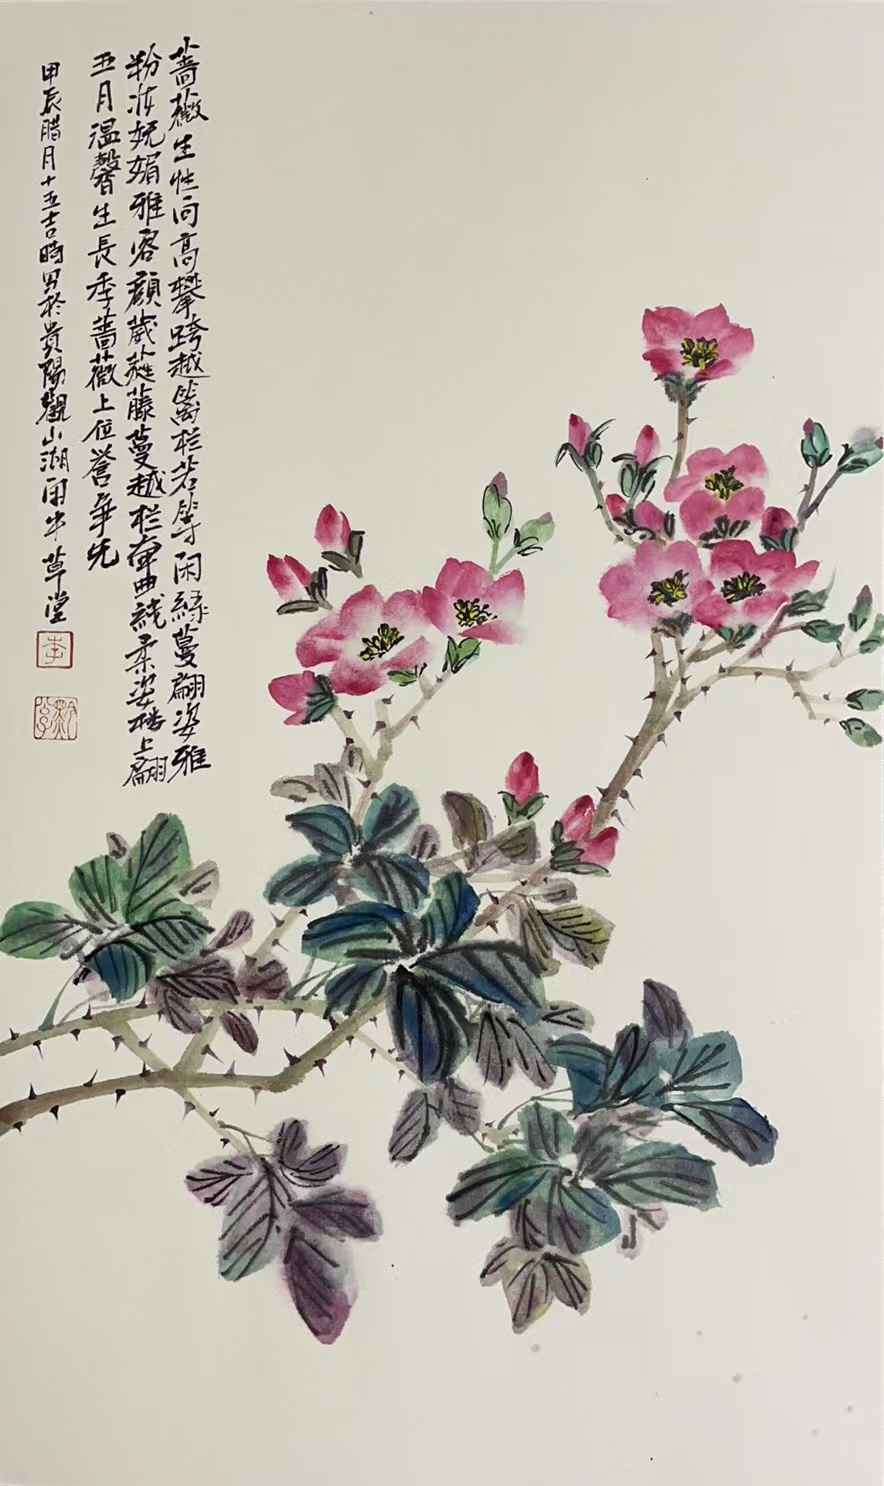 薔薇生性向高攀跨越篱栏若等闲緑蔓翩姿雅
粉妆妩媚雅容顔葳蕤藤蔓越栏曲綫柔姿楼上翩
五月温馨生長季薔薇上位誉争先
甲辰腊月十五吉時写於貴陽觀山湖闲半草堂
李